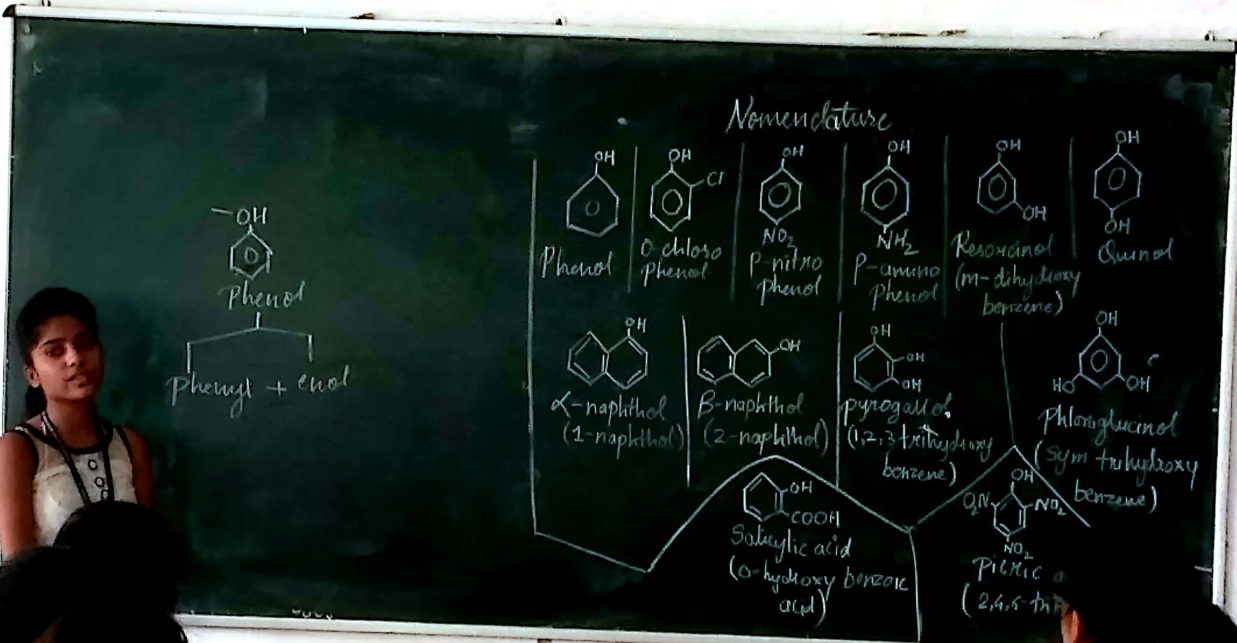 Nomenclature
OH
Phenol
Phenyl + enol
OH
Phenol
OH
Cl
O-chloro
Phenol
OH
NO2
P-nitro
phenol
OH
NH2
P-amino
Phenol
OH
OH
Resorcinol
(m-dihydroxy
benzene)
OH
OH
Quinol
OH
α-naphthol
(1-naphthol)
OH
β-naphthol
(2-naphthol)
OH
OH
OH
pyrogallol
(1,2,3 trihydroxy
benzene)
OH
HO OH
Phloroglucinol
(sym trihydroxy
benzene)
OH
COOH
Salicylic acid
(O-hydroxy benzoic
acid)
OH
O2N NO2
NO2
Picric
(2,4,6-tri